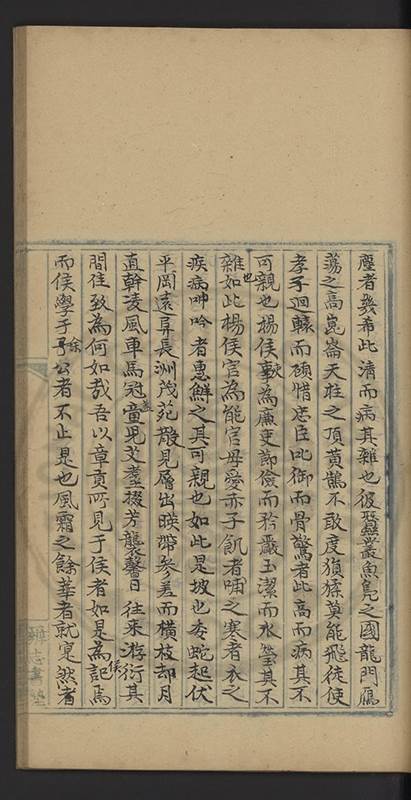 塵者幾希此清而病其雜也彼蠶叢魚鳧之國龍門鴈
蕩之高崑崙天柱之頂黃鵠不敢度猿猱莫能飛徒使
孝子迴轅而顧惜忠臣叱御而骨驚者此高而病其不
可親也楊侯事為廉吏節儉而矜嚴玉潔而水瑩其不
雜如此也楊侯官為能官母愛赤子飢者哺之寒者衣之
疾病呻吟者惠鮮之其可親也如此是坡也委蛇起伏
平岡遠阜長洲茂苑散見層出暎帶參差而橫枝却月
直幹凌風車馬冠蓋童兒艾耋掇芳襲馨日往來游衍其
間佳致為何如哉吾以章貢所見于侯者如是為記焉
而侯學于余公者不止是也風霜之餘華者就寔然者